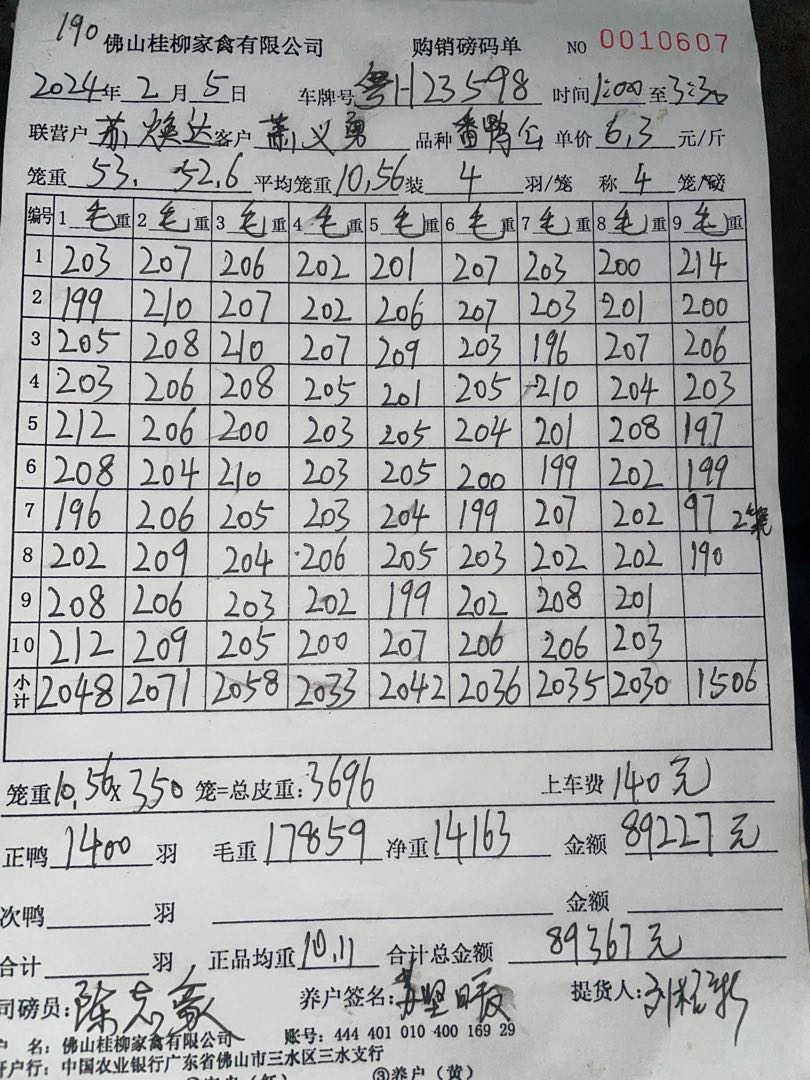 190
佛山桂柳家禽有限公司 购销磅码单 NO 0010607
2024年 2 月 5 日 车牌号 粤H23598 时间 1:00 至 3:30
联营户 苏焕达 客户 萧义勇 品种 番鸭公 单价 6,3 元/斤
笼重 53. 52.6 平均笼重 10,56 装 4 羽/笼 称 4 笼/磅
编号 1 毛重 2 毛重 3 毛重 4 毛重 5 毛重 6 毛重 7 毛重 8 毛重 9 毛重
1 203 207 206 202 201 207 203 200 214
2 199 210 207 202 206 207 203 201 200
3 205 208 210 207 209 203 196 207 206
4 203 206 208 205 201 205 210 204 203
5 212 206 200 203 205 204 201 208 197
6 208 204 210 203 205 200 199 202 199
7 196 206 205 203 204 199 207 202 97 2笼
8 202 209 204 206 205 203 202 202 190
9 208 206 203 202 199 202 208 201
10 212 209 205 200 207 206 206 203
小计 2048 2071 2058 2033 2042 2036 2035 2030 1506
笼重 10,56 x 350 笼=总皮重: 3696 上车费 140元
正鸭 1400 羽 毛重 17859 净重 14163 金额 89227元
次鸭 羽 金额
合计 羽 正品均重 10,11 合计总金额 89367元
司磅员: 陈志豪 养户签名: 苏坚暖 提货人:
户 名: 佛山桂柳家禽有限公司 账号: 444 401 010 400 169 29
开户行: 中国农业银行广东省佛山市三水区三水支行
③养户 (黄)